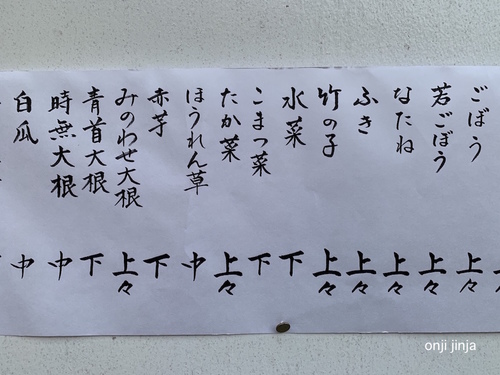 ごぼう 上々
若ごぼう 上々
なたね 上々
ふき 上々
竹の子 上々
水菜 下
こまつ菜 下
たか菜 上々
ほうれん草 中
赤芋 下
みのわせ大根 上々
青首大根 下
時無大根 中
白瓜 中
onji jinja